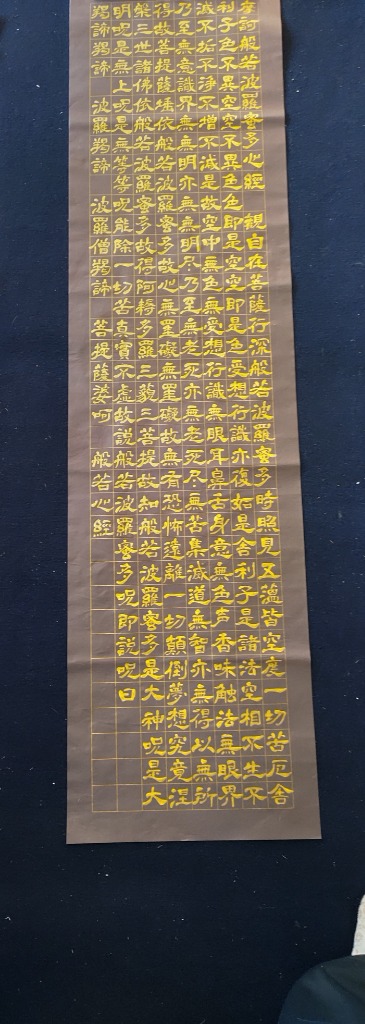 摩訶般若波羅蜜多心經 觀自在菩薩行深般若波羅蜜多時照見五蘊皆空度一切苦厄舍
利子色不異空空不異色色即是空空即是色受想行識亦復如是舍利子是諸法空相不生不
滅不垢不淨不增不減是故空中無色無受想行識無眼耳鼻舌身意無色声香味触法無眼界
乃至無意識界無無明亦無無明尽乃至無老死亦無老死尽無苦集滅道無智亦無得以無所
得故菩提薩埵依般若波羅蜜多故心無罣礙無罣礙故無有恐怖遠離一切顛倒夢想究竟涅
槃三世諸佛依般若波羅蜜多故得阿耨多羅三藐三菩提故知般若波羅蜜多是大神呪是大
明呪是無上呪是無等等呪能除一切苦真實不虛故說般若波羅蜜多呪即說呪曰
羯諦羯諦 波羅羯諦 波羅僧羯諦 菩提薩婆呵 般若心經